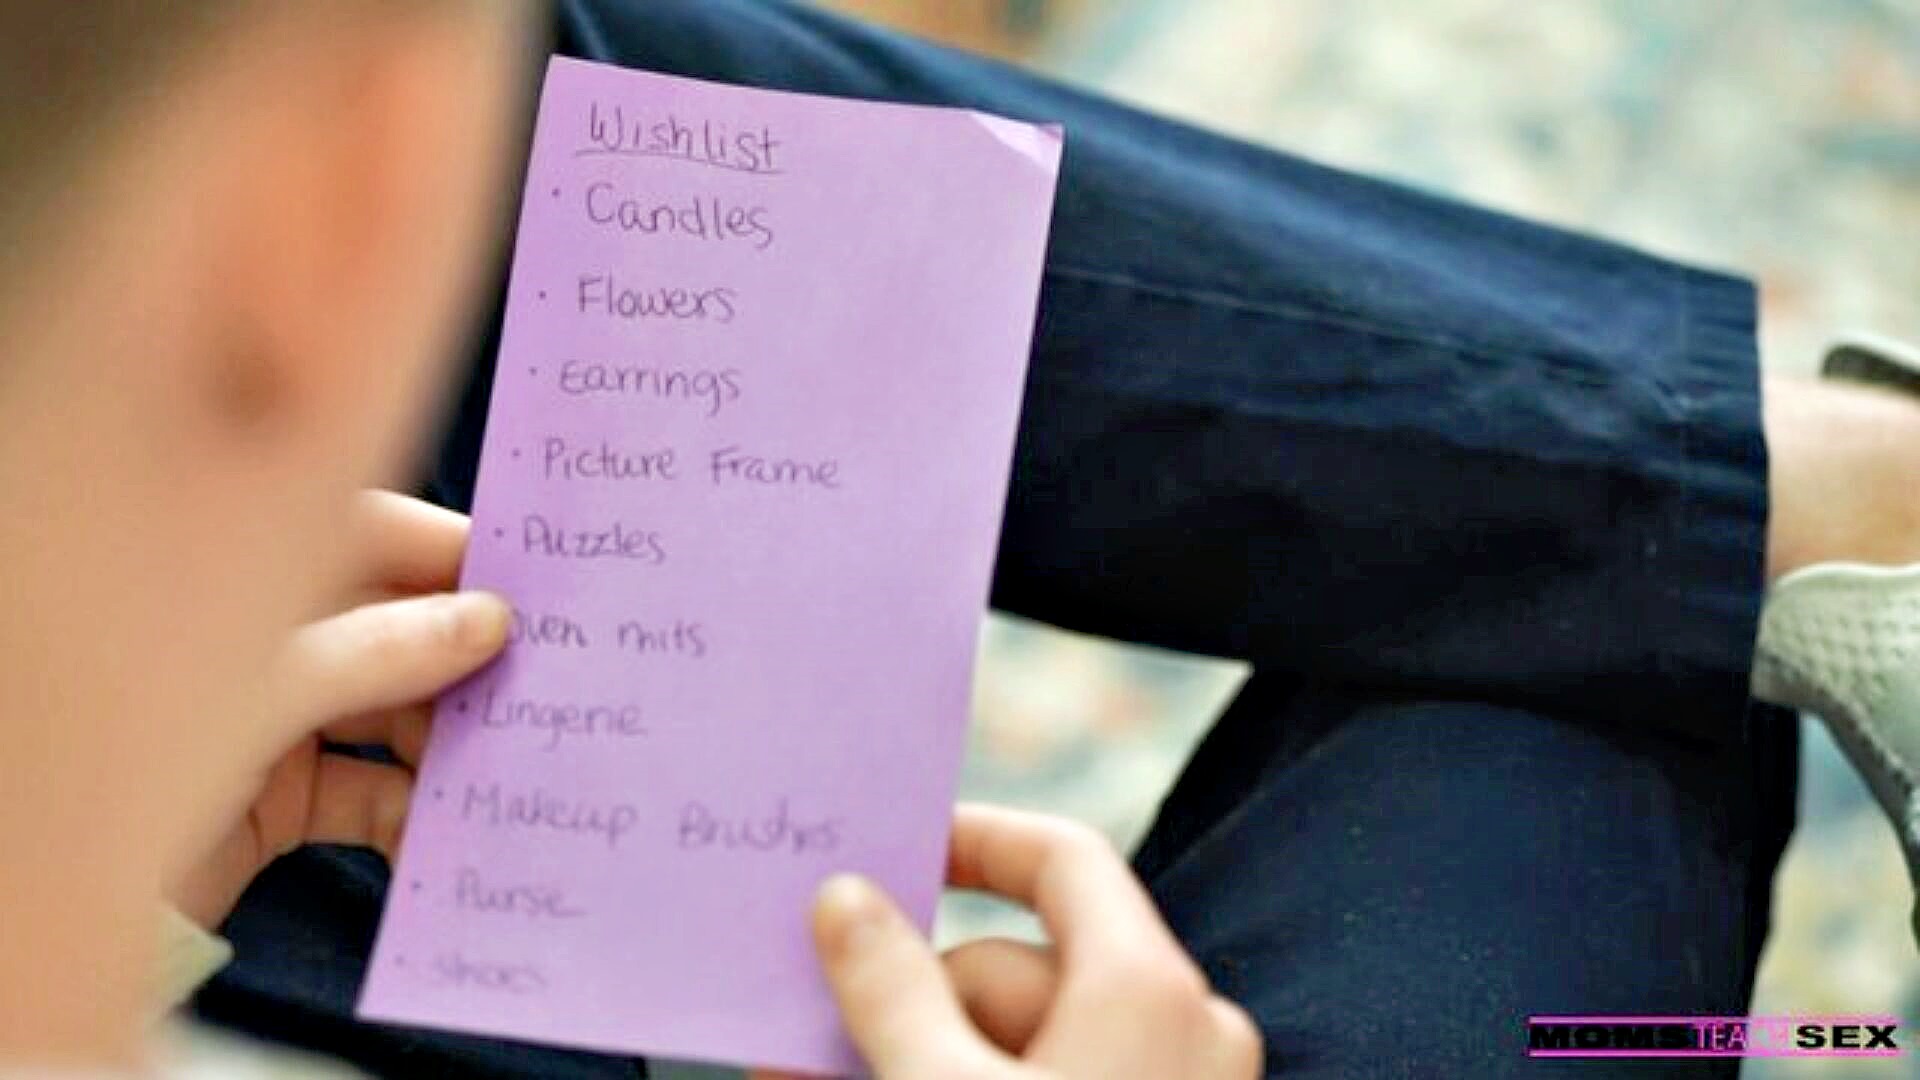 Wishlist
• Candles
• Flowers
• Earrings
• Picture Frame
• Puzzles
oven mits
• Lingerie
• Makeup Brushes
• Purse
• Shoes
MOMSTEACHSEX